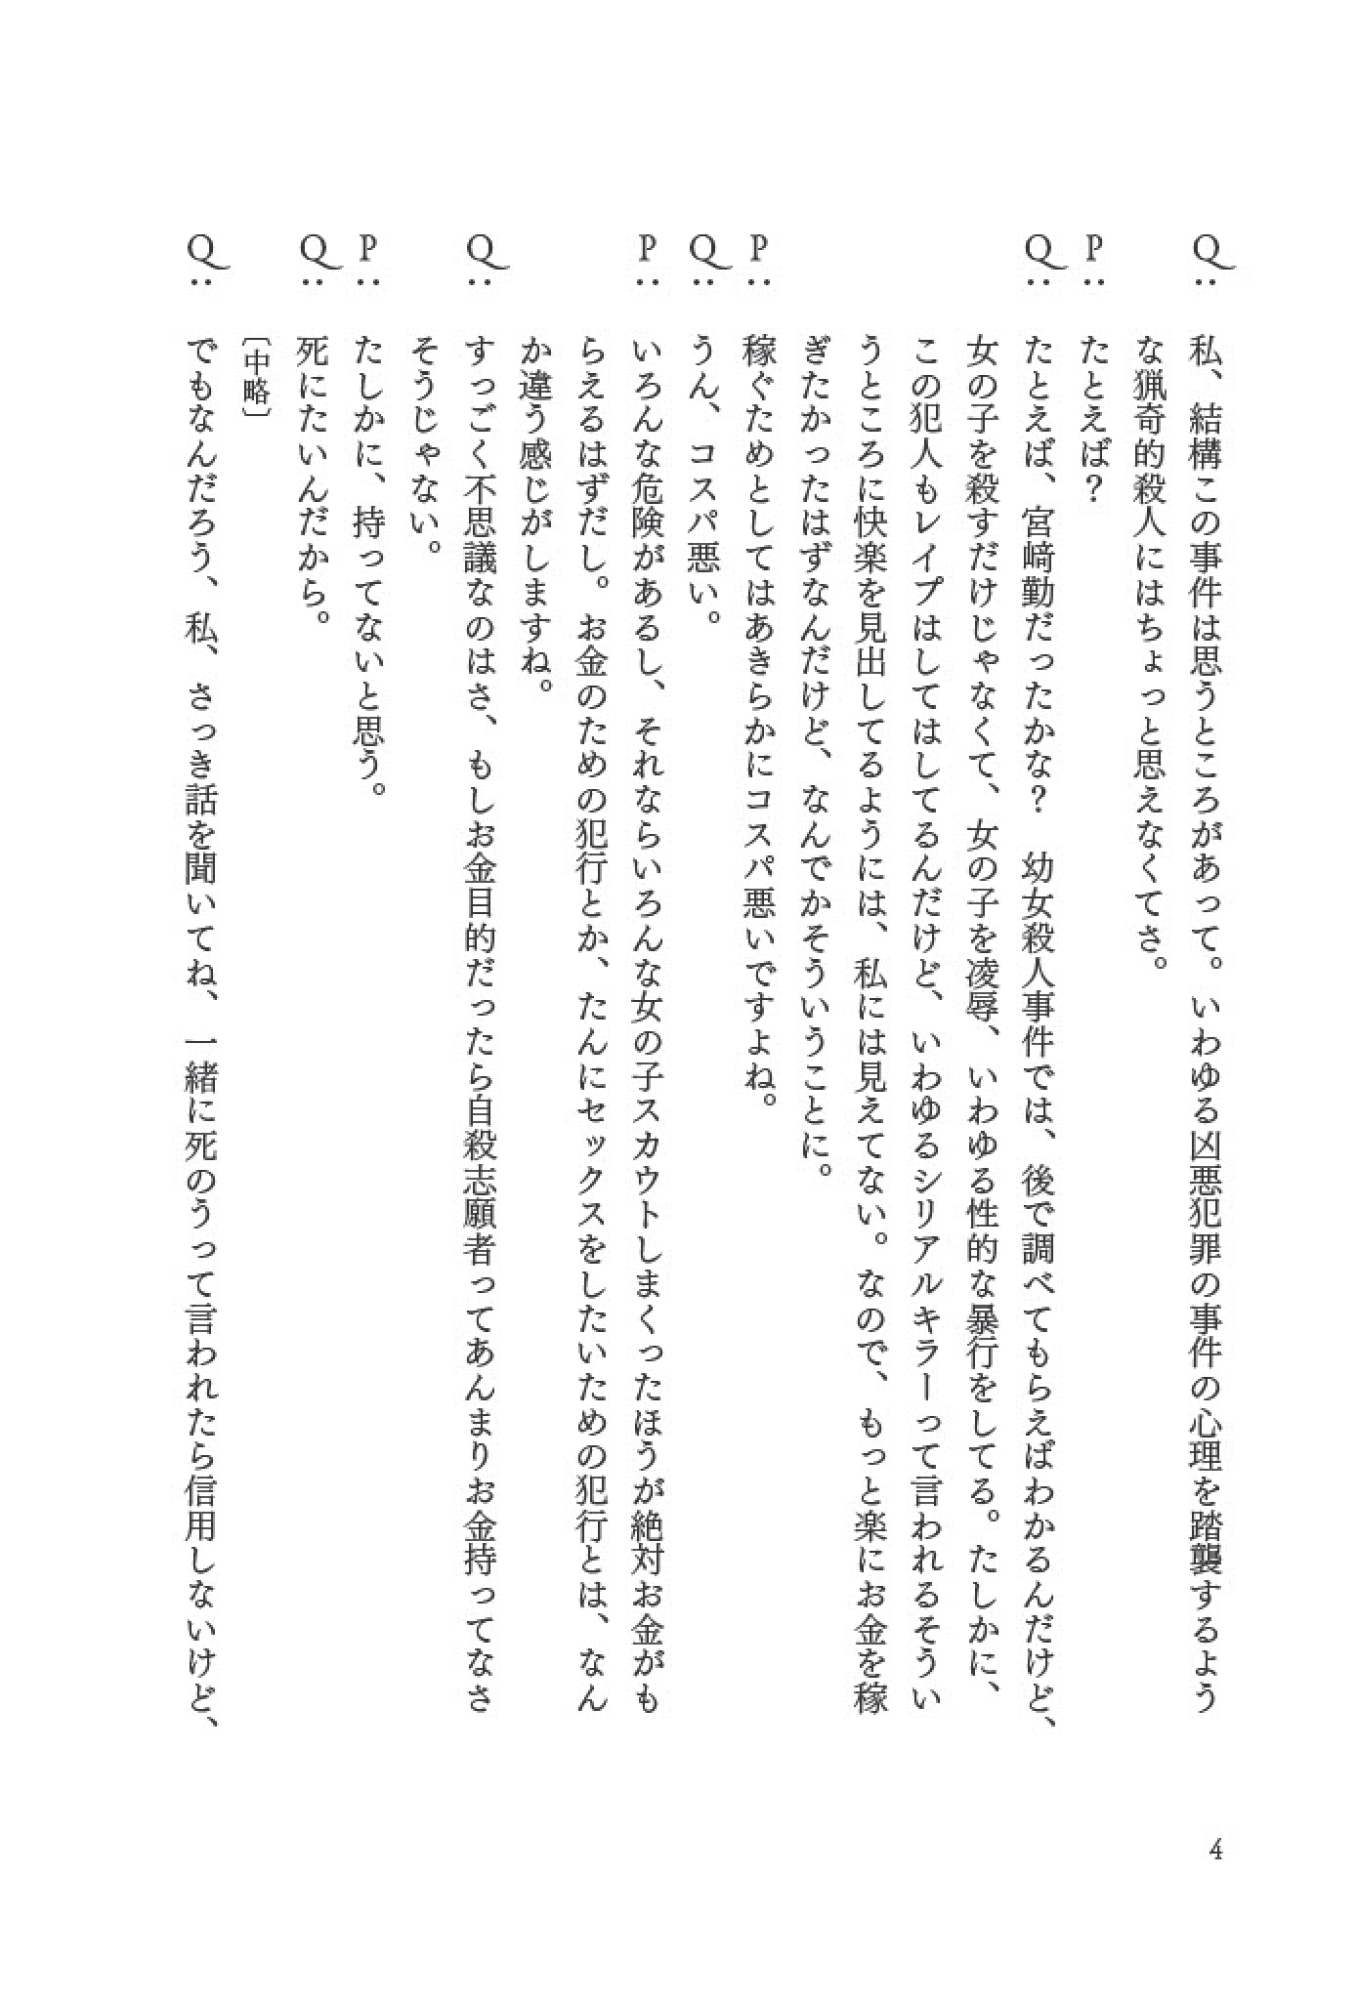 Q: 私、結構この事件は思うところがあって。いわゆる凶悪犯罪の事件の心理を踏襲するよう
な猟奇的殺人にはちょっと思えなくてさ。
P: たとえば？
Q: たとえば、宮﨑勤だったかな？　幼女殺人事件では、後で調べてもらえばわかるんだけど、
女の子を殺すだけじゃなくて、女の子を凌辱、いわゆる性的な暴行をしてる。たしかに、
この犯人もレイプはしてはしてるんだけど、いわゆるシリアルキラーって言われるそうい
うところに快楽を見出してるようには、私には見えてない。なので、もっと楽にお金を稼
ぎたかったはずなんだけど、なんでかそういうことに。
P: 稼ぐためとしてはあきらかにコスパ悪いですよね。
Q: うん、コスパ悪い。
P: いろんな危険があるし、それならいろんな女の子スカウトしまくったほうが絶対お金がも
らえるはずだし。お金のための犯行とか、たんにセックスをしたいための犯行とは、なん
か違う感じがしますね。
Q: すっごく不思議なのはさ、もしお金目的だったら自殺志願者ってあんまりお金持ってなさ
そうじゃない。
P: たしかに、持ってないと思う。
Q: 死にたいんだから。
［中略］
Q: でもなんだろう、私、さっき話を聞いてね、一緒に死のうって言われたら信用しないけど、
4